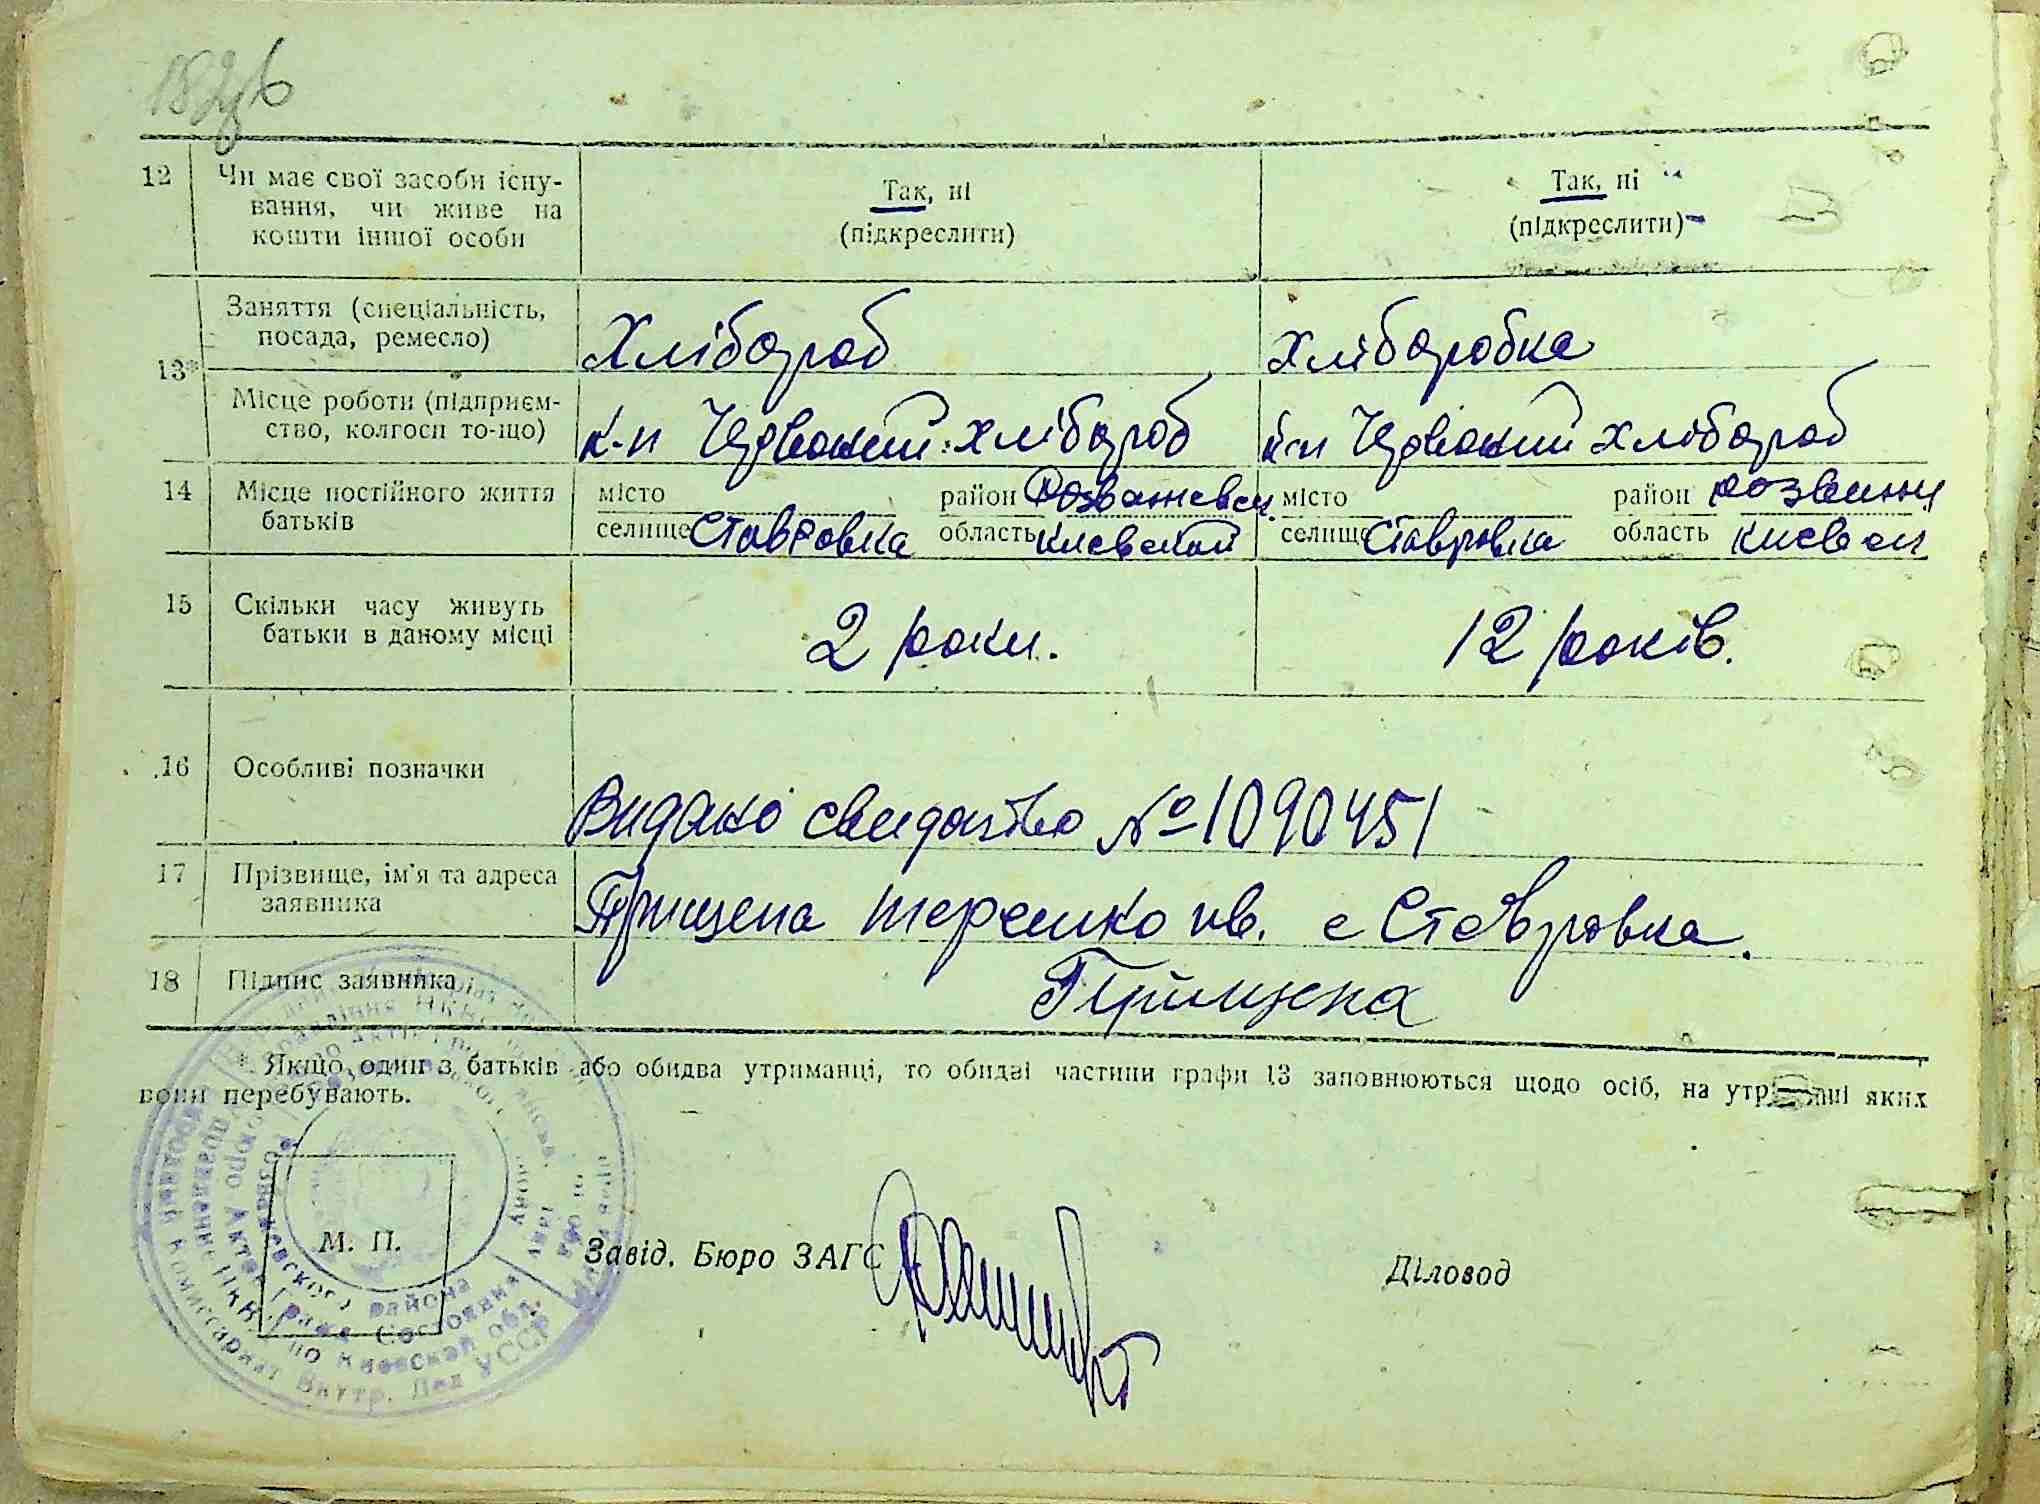 182зв
12 Чи має свої засоби існу- Так, ні Так, ні
вання, чи живе на (підкреслити) (підкреслити)
кошти іншої особи
Заняття (спеціальність, Хлібороб Хліборобка
посада, ремесло)
13*
Місце роботи (підприєм- к-п Червоний хлібороб к-п Червоний хлібороб
ство, колгосп то-що)
14 Місце постійного життя місто район Розважевск. місто район розважев
батьків селище Ставровка область киевской селище Ставровка область киевск
15 Скільки часу живуть 2 роки. 12 років.
батьки в даному місці
16 Особливі позначки
Видано свидоство № 1090451
17 Прізвище, ім'я та адреса Прищепа ів. с Ставровка.
заявника
18 Підпис заявника Прищепа
* Якщо один з батьків або обидва утриманці, то обидві частини графи 13 заповнюються щодо осіб, на утриманні яких
вони перебувають.
М. П.
Завід. Бюро ЗАГС Діловод
Народний Комиссариат Внутр. Дел УССР
Управление НКВД по Киевской обл.
Бюро Актов Гражд. Состояния
Розважевского района